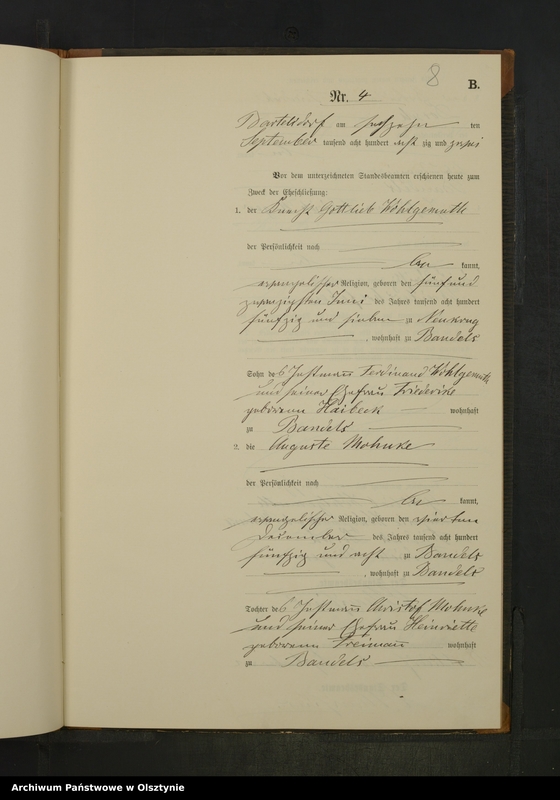 8
B.
Nr. 4
Bartelsdorf am sechszehn ten
September tausend acht hundert acht zig und zwei
Vor dem unterzeichneten Standesbeamten erschienen heute zum
Zweck der Eheschließung:
1. der Knecht Gottlieb Wohlgemuth
der Persönlichkeit nach
be kannt,
evangelischer Religion, geboren den fünfund
zwanzigsten Juni des Jahres tausend acht hundert
fünfzig und sieben zu Neukrug
, wohnhaft zu Bandels
Sohn des Instmann Ferdinand Wohlgemuth
und seiner Ehefrau Friederike
geborenen Haibeck wohnhaft
zu Bandels
2. die Auguste Mohnke
der Persönlichkeit nach
be kannt,
evangelischer Religion, geboren den vierten
December des Jahres tausend acht hundert
fünfzig und acht zu Bandels
, wohnhaft zu Bandels
Tochter des Instmann Christof Mohnke
und seiner Ehefrau Heinriette
geborenen Freimann wohnhaft
zu Bandels
Archiwum Państwowe w Olsztynie